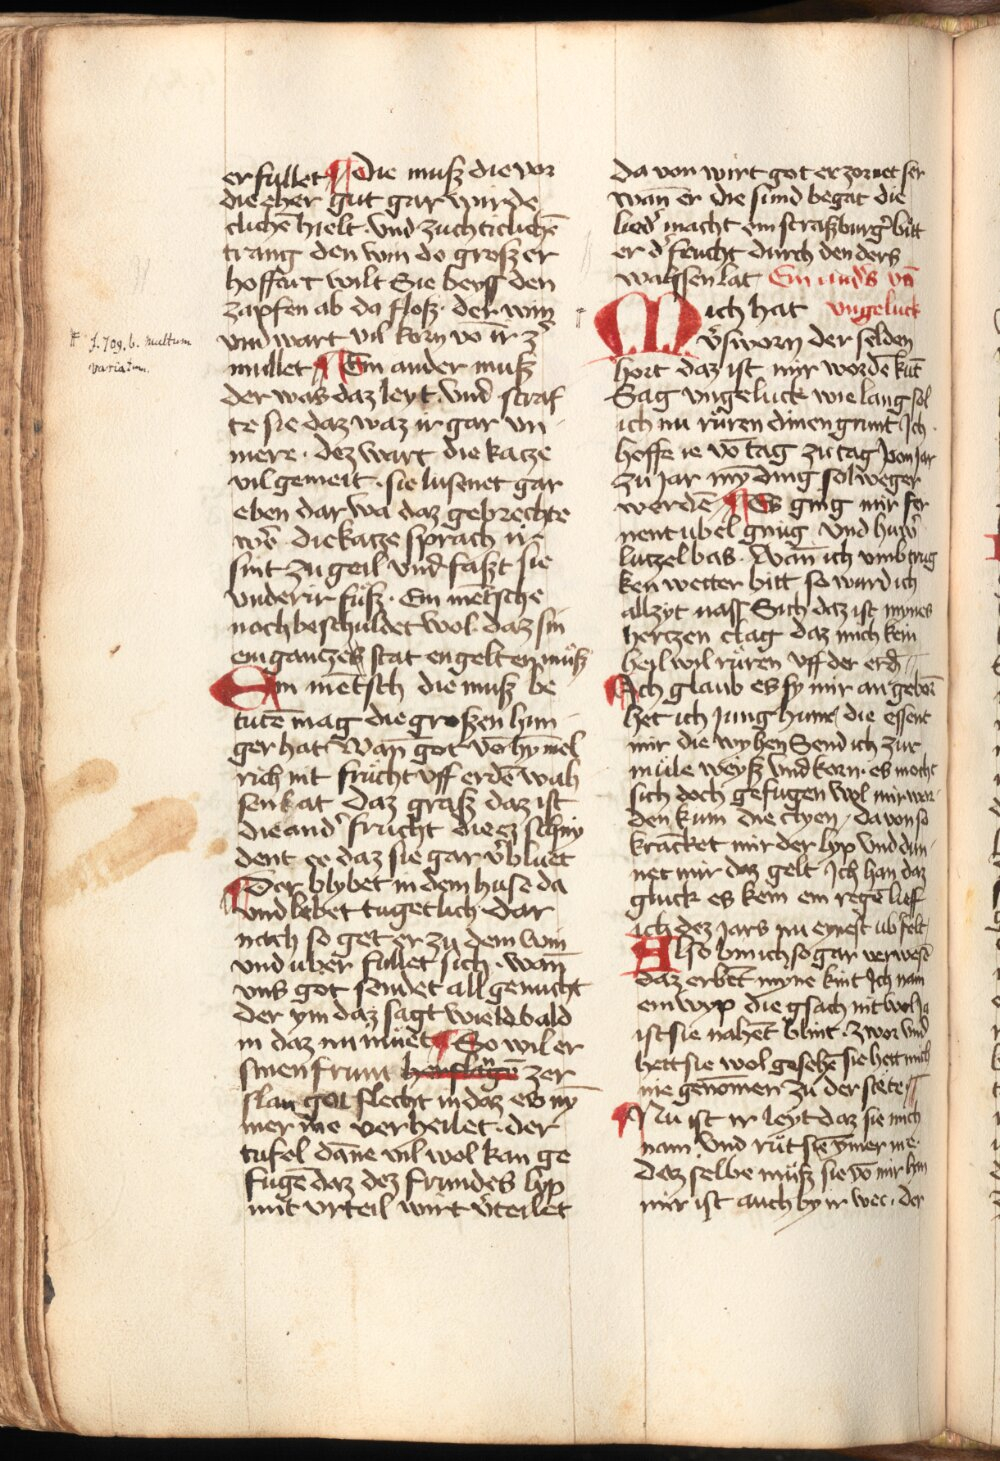 erfullet ¶ die musz die vor
die eher gut gar wirde
clichē hielt vnd zuchticlichē
trang den win do groszer
hoffart wilt Sie berg den
zapfen ab do flosz der win
vnd wart vil korn vō ir z
mullet ¶ Ein ander musz
der was daz leyt vnd straf
te sie daz waz ir gar vn
mere · dez wart die katze
vil gemeit · sie lusenet gar
eben dar wa daz gebrechte
wē die katze sprach ir
sint zu geil vnd faszt sie
vnder ir fusz · Ein mētsche
noch beschuldet wol daz sin
ein gantzes stat engelten musz
Ein mētsch die musz be
tutē mag die groszen hun
ger hat Wan got vō hymel
rich nit frucht vff erdē wah
sen lat daz grasz daz ist
die and' frucht die ez schny
dent ee daz sie gar v'bluet
Der blybet in dem huse da
vnd lebet tugetlich dar
nach so get er zu dem win
vnd uber fullet sich · wan
vns got sendet all genucht
der ym daz sagt wield bald
in daz nu muet ¶ So wil er
sinen frunt zer
slan got flecht in daz es ny
mer me verheilet · der
tufel dāne vil wol kan ge
fugē daz dez frundes lyp
mit vrteil wirt v'teilet
f. 709. b. multum
variatum.
da von wirt got erzornet ser
wan er die sund begat die
lied' macht ein straszburg' bitt
er d' frucht durch den ders
wahssen lat Ein and's vō
Mich hat vngeluck
v'sworn der selden
hort daz ist mir wordē kūt
Sag vngeluck wie lang sol
ich nu ruren dinen grunt Ich
hoffe ie vō tag zu tag von jar
zu jar my ding sol weger
werdē ¶ Es ging mir fer
nent ubel gnug vnd hur'
lutzel bas · Wan ich vmb trug
ken wetter bitt so ward ich
allzyt nass Sich daz ist mynes
hertzen clag daz mich kein
heil wil ruren vff der erd
Ich glaub es sy mir an geborē
het ich jung hunr die essent
mir die wyhen Send ich zur
mule weysz vnd korn · es mocht
sich doch gefugen wol mir wer
den kum die clyen / da von so
krācket mir der lyp vnd dun
net mir daz gelt Ich han daz
gluck es kem ein regē lief
ich dez jars nu eynest ub felt
Also bin ich so gar verwest
daz erbet myne kint Ich nam
ein wyp die gsach nit wol ja
ist sie nahēt blint · zwor vnd
hett sie wol gesehē sie hett mich
nie genomen zu der stete
Nu ist ir leyt daz sie mich
nam vnd rut sie ymer me ·
Dez selbe musz sie vō mir hin
mir ist auch by ir wee · der